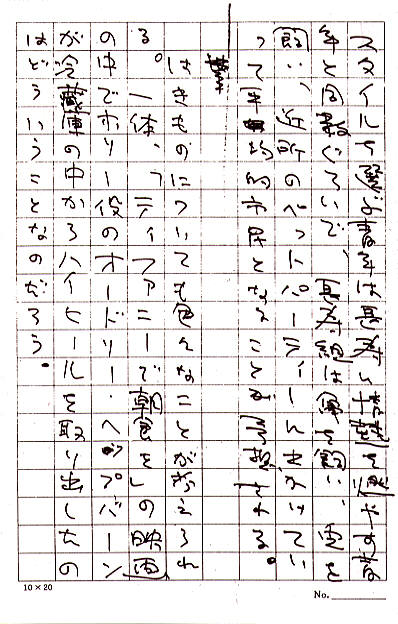 スタイルを選ぶ青年は長寿に情熱を燃やす青
年と同数ぐらいで、長寿組は犬を飼い、
飼い、近所のペットパーティーに出かけてい
って平均的市民となることが
はきものについても色んなことが考えられ
る。一体、「ティファニーで朝食を」の映画
の中でホリー役のオードリー・ヘップバーン
が冷蔵庫の中からハイヒールを取り出したの
はどういうことなのだろう。
10×20
No.